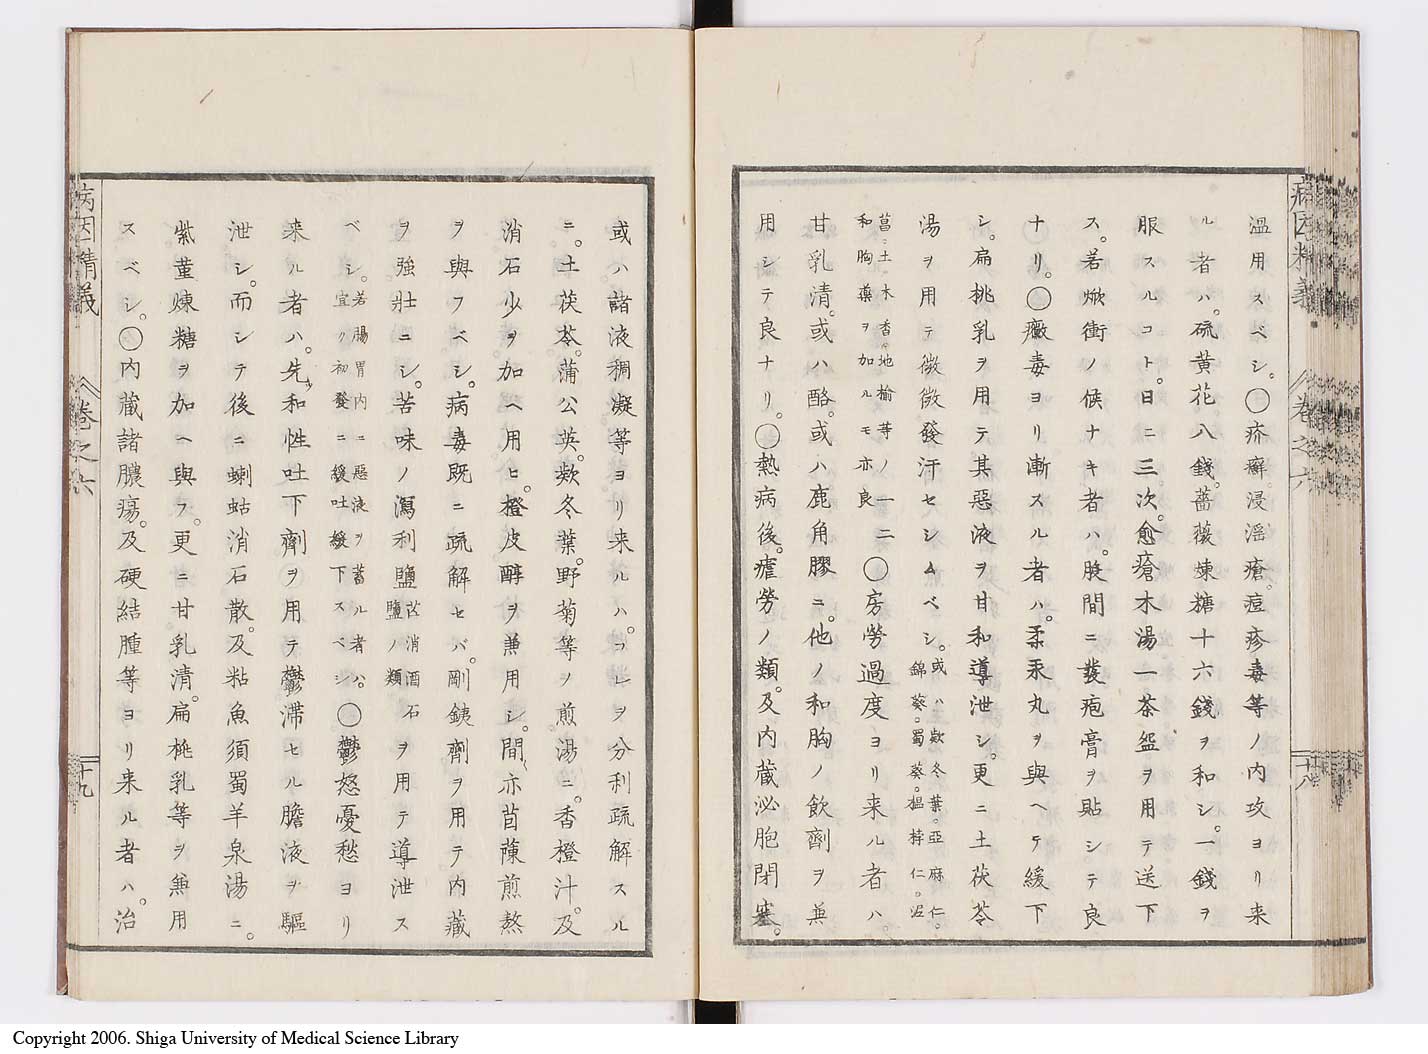 病因精義
卷之六
十八
溫用スベシ。〇疥癬。浸淫瘡。痘疹。毒等ノ内攻ヨリ来
ル者ハ。硫黄花八錢。薔薇煉糖十六錢ヲ和シ。一錢ヲ
服スルコト。日ニ三次。愈瘡木湯一茶盌ヲ用テ送下
ス。若焮衝ノ候ナキ者ハ。股間ニ發疱膏ヲ貼シテ良
ナリ。〇黴毒ヨリ漸スル者ハ。柔汞丸ヲ與ヘテ緩下
シ。扁桃乳ヲ用テ其惡液ヲ甘和導泄シ。更ニ土茯苓
湯ヲ用テ微微發汗セシムベシ。或ハ欵冬葉。亞麻仁。
錦葵。蜀葵。榲桲仁。泥
菖。土木香。地榆等ノ一二
和胸藥ヲ加ルモ亦良
〇房勞過度ヨリ来ル者ハ
甘乳清。或ハ酪。或ハ鹿角膠ニ。他ノ和胸ノ飲劑ヲ兼
用シテ良ナリ。〇熱病後。瘧勞ノ類。及内蔵泌胞閉塞。
或ハ諸液稠凝等ヨリ来ルハ。コレヲ分利疏解スル
ニ。土茯苓。蒲公英。欵冬葉。野菊等ノ煎湯ニ。香橙汁。及
消石少ヲ加ヘ用ヒ。橙皮醇ヲ兼用シ。間亦茵蔯煎熬
ヲ與フベシ。病毒既ニ疏解セバ。剛鐵劑ヲ用テ内蔵
ヲ強壯ニシ。苦味ノ瀉利鹽
消酒石
鹽ノ類
ヲ用テ導泄ス
ベシ。若腸胃内ニ惡液ヲ蓄ル者ハ。
宜ク初發ニ緩吐緩下スベシ
〇鬱怒憂愁ヨリ
来ル者ハ。先和性吐下劑ヲ用テ鬱滞セル膽液ヲ驅
泄シ。而シテ後ニ蝲蛄消石散。及粘魚須蜀羊泉湯ニ。
紫菫煉糖ヲ加ヘ與フ。更ニ甘乳清。扁桃乳等ヲ兼用
スベシ。〇内蔵諸膿瘍。及硬結腫等ヨリ来ル者ハ。治
病因精義
卷之六
十九
Copyright 2006. Shiga University of Medical Science Library